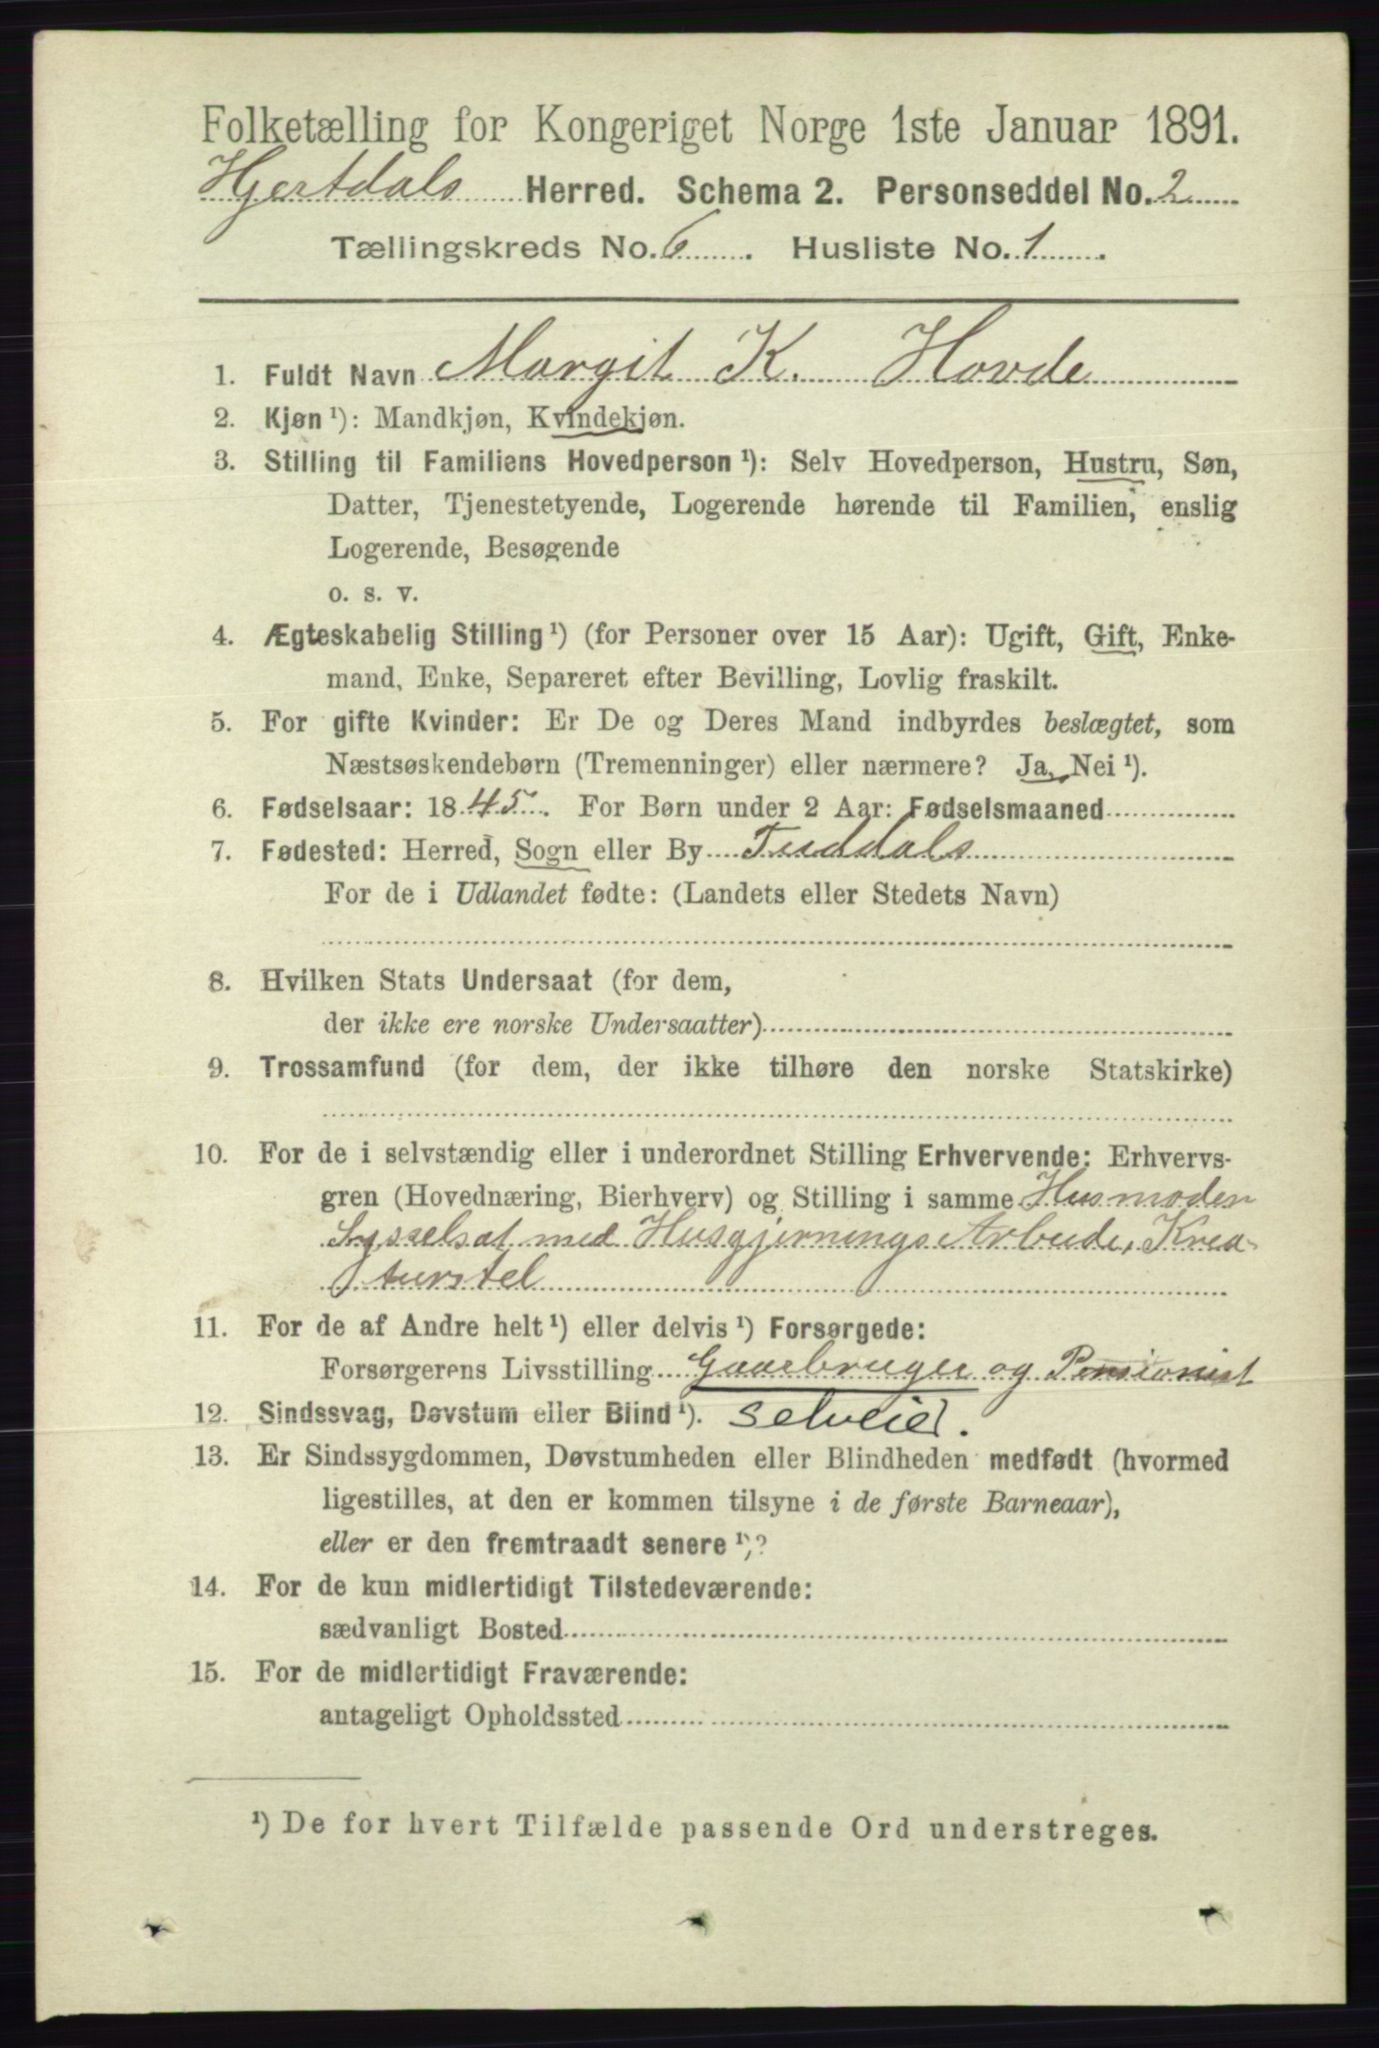 Folketælling for Kongeriget Norge 1ste Januar 1891.
Hjertdals Herred. Schema 2. Personseddel No. 2
Tællingskreds No. 6. Husliste No. 1.
1. Fuldt Navn Margit K. Hovde
2. Kjøn ¹): Mandkjøn, Kvindekjøn.
3. Stilling til Familiens Hovedperson ¹): Selv Hovedperson, Hustru, Søn,
Datter, Tjenestetyende, Logerende hørende til Familien, enslig
Logerende, Besøgende
o. s. v.
4. Ægteskabelig Stilling ¹) (for Personer over 15 Aar): Ugift, Gift, Enke-
mand, Enke, Separeret efter Bevilling, Lovlig fraskilt.
5. For gifte Kvinder: Er De og Deres Mand indbyrdes beslægtet, som
Næstsøskendebørn (Tremenninger) eller nærmere? Ja, Nei ¹).
6. Fødselsaar: 1845. For Børn under 2 Aar: Fødselsmaaned
7. Fødested: Herred, Sogn eller By Tuddals
For de i Udlandet fødte: (Landets eller Stedets Navn)
8. Hvilken Stats Undersaat (for dem,
der ikke ere norske Undersaatter)
9. Trossamfund (for dem, der ikke tilhøre den norske Statskirke)
10. For de i selvstændig eller i underordnet Stilling Erhvervende: Erhvervs-
gren (Hovednæring, Bierhverv) og Stilling i samme Husmoder
Sysselsat med Husgjernings Arbeide, Krea-
turstel
11. For de af Andre helt ¹) eller delvis ¹) Forsørgede:
Forsørgerens Livsstilling Gaarbruger og Pensionist
12. Sindssvag, Døvstum eller Blind ¹). selveier.
13. Er Sindssygdommen, Døvstumheden eller Blindheden medfødt (hvormed
ligestilles, at den er kommen tilsyne i de første Barneaar),
eller er den fremtraadt senere ¹)?
14. For de kun midlertidigt Tilstedeværende:
sædvanligt Bosted
15. For de midlertidigt Fraværende:
antageligt Opholdssted
¹) De for hvert Tilfælde passende Ord understreges.